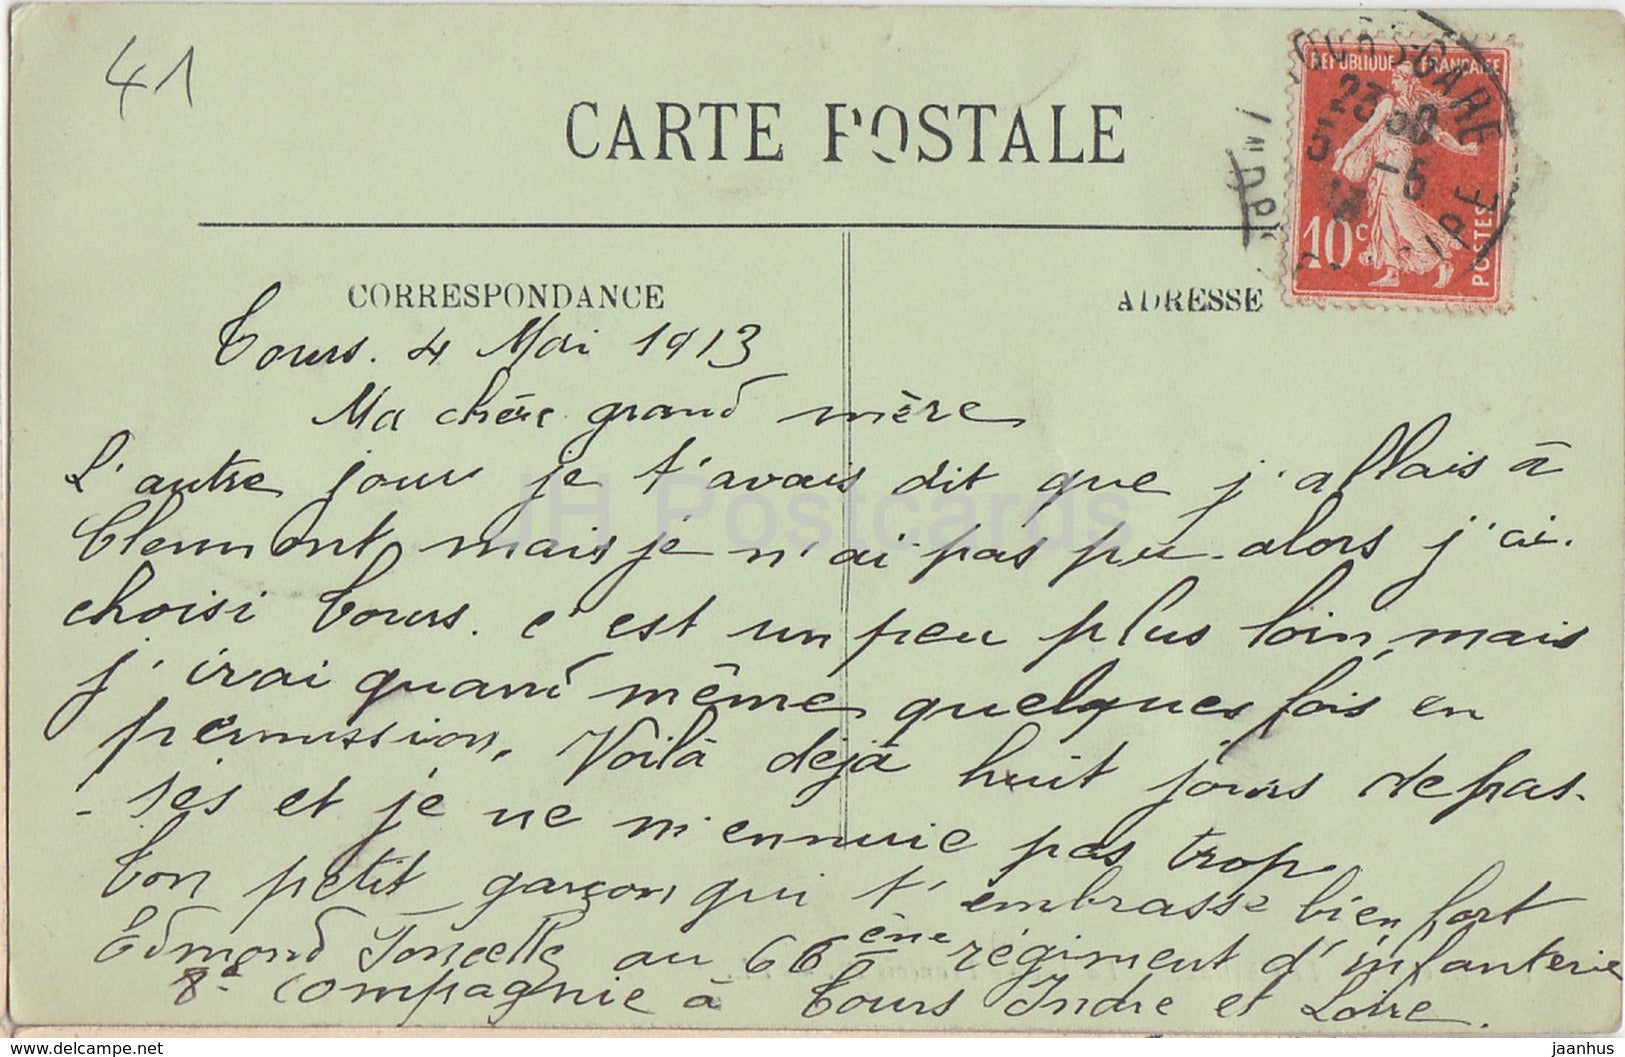 41
CARTE POSTALE
TOURS-GARE
23 30
5 -5
13
INDRE
RÉPUBLIQUE FRANÇAISE
10c
POSTES
CORRESPONDANCE
ADRESSE
Tours. 4 Mai 1913
Ma chère grand mère
L'autre jour je t'avais dit que j'allais à
Clermont mais je n'ai pas pu. alors j'ai.
choisi Tours. c'est un peu plus loin mais
j'irai quand même quelques fois en
permission. Voilà déjà huit jours de pas-
-sés et je ne m'ennuie pas trop
Ton petit garçon qui t'embrasse bien fort
Edmond au 66ème régiment d'infanterie
8e compagnie à Tours Indre et Loire.
IH Postcards
jaanhus
www.delcampe.net